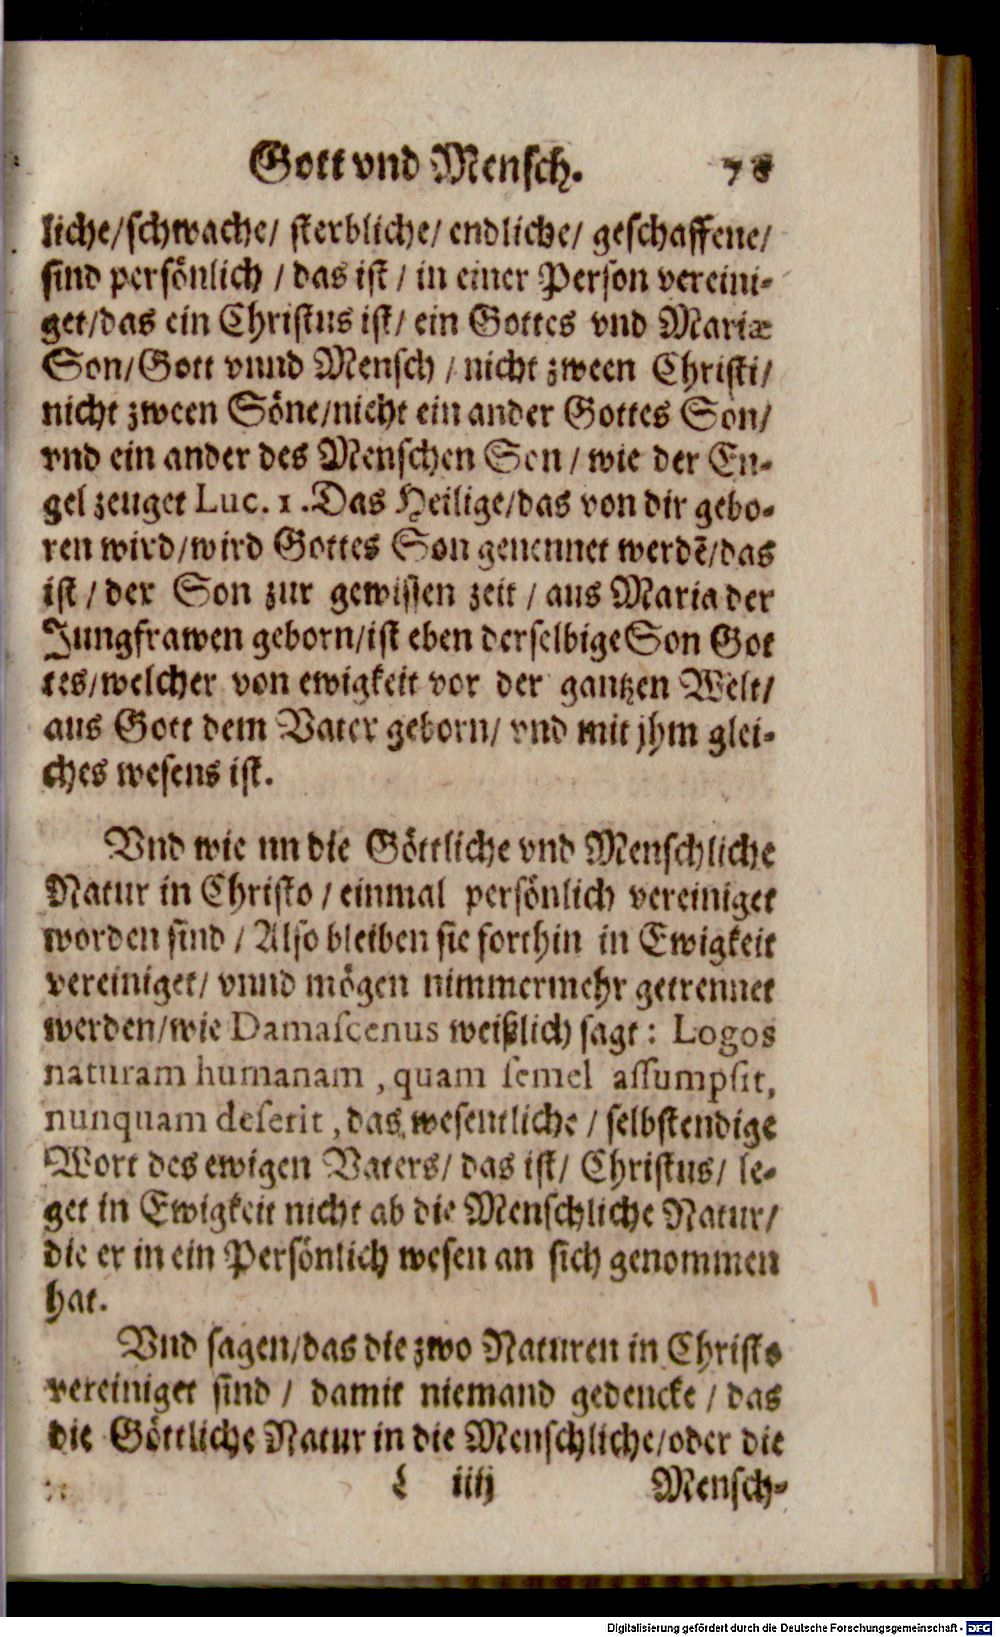 Gott vnd Mensch. 78
liche/schwache/ sterbliche/ endliche/ geschaffene/
sind persönlich / das ist / in einer Person vereini-
get/das ein Christus ist/ ein Gottes vnd Mariæ
Son/Gott vnnd Mensch / nicht zween Christi/
nicht zween Söne/nicht ein ander Gottes Son/
vnd ein ander des Menschen Son / wie der En-
gel zeuget Luc. 1 .Das Heilige/das von dir gebo-
ren wird/wird Gottes Son genennet werdē/das
ist / der Son zur gewissen zeit / aus Maria der
Jungfrawen geborn/ist eben derselbige Son Got
tes/welcher von ewigkeit vor der gantzen Welt/
aus Gott dem Vater geborn/ vnd mit jhm glei-
ches wesens ist.
Vnd wie nn die Göttliche vnd Menschliche
Natur in Christo / einmal persönlich vereiniget
worden sind / Also bleiben sie forthin in Ewigkeit
vereiniget/ vnnd mögen nimmermehr getrennet
werden/wie Damascenus weißlich sagt: Logos
naturam humanam , quam semel assumpsit,
nunquam deserit , das wesentliche / selbstendige
Wort des ewigen Vaters/ das ist/ Christus/ le-
get in Ewigkeit nicht ab die Menschliche Natur/
die er in ein Persönlich wesen an sich genommen
hat.
Vnd sagen/das die zwo Naturen in Christo
vereiniget sind / damit niemand gedencke / das
die Göttliche Natur in die Menschliche/oder die
iiij Mensch-
Digitalisierung gefördert durch die Deutsche Forschungsgemeinschaft - DFG